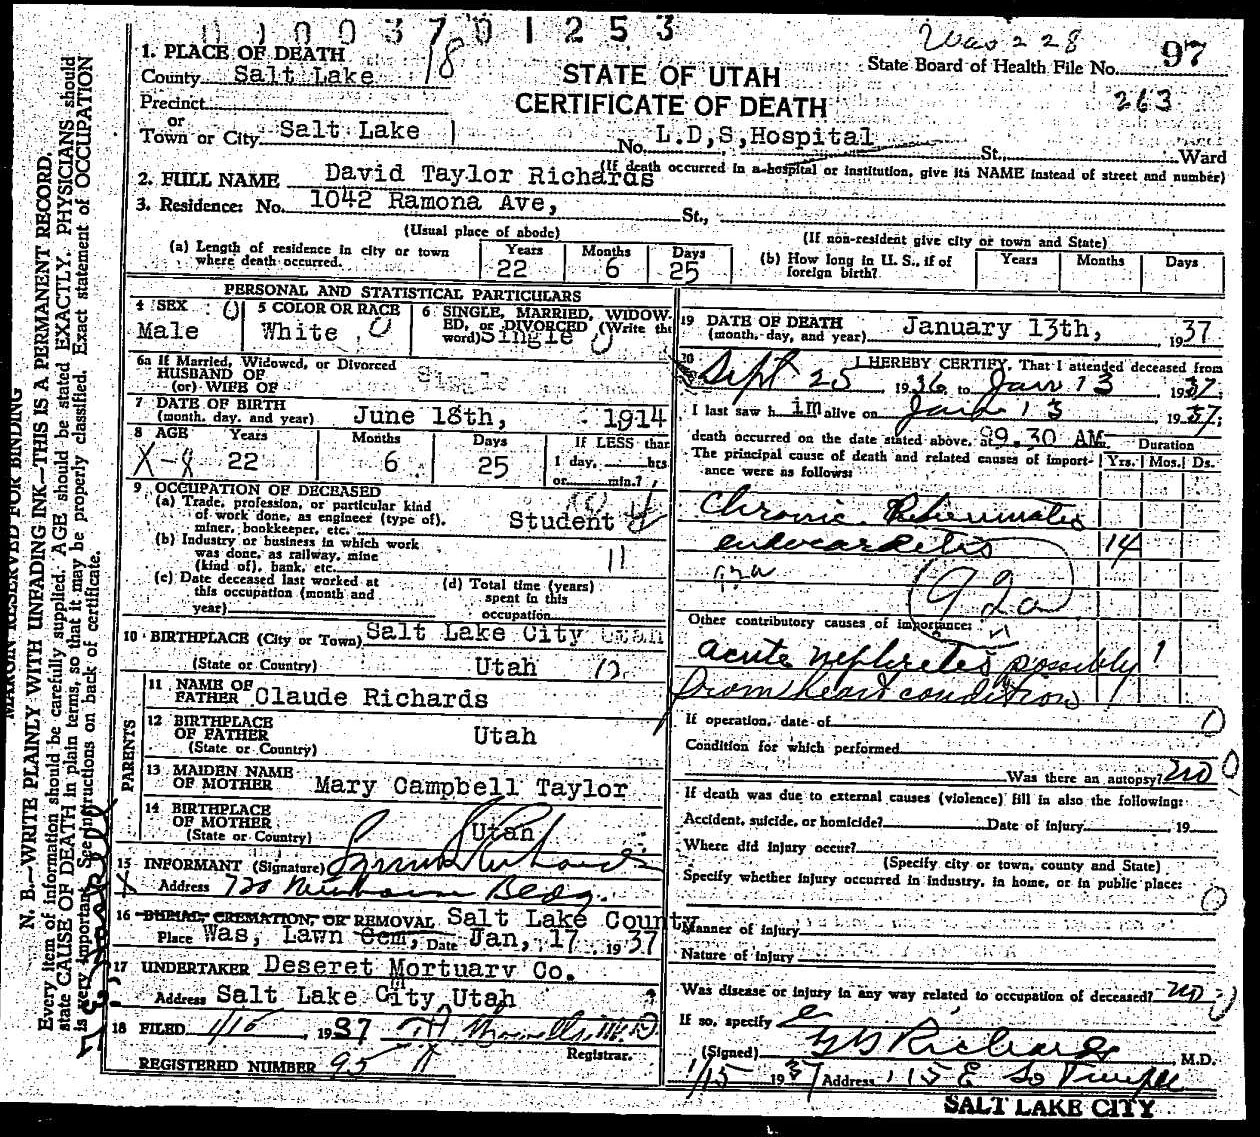 0 1 0 0 3 7 0 1 2 5 3
Was 228
97
State Board of Health File No.
263
1. PLACE OF DEATH
County Salt Lake
18
STATE OF UTAH
CERTIFICATE OF DEATH
Precinct
or
Town or City Salt Lake
No. L.D,S,Hospital St., Ward
(If death occurred in a hospital or institution, give its NAME instead of street and number)
2. FULL NAME David Taylor Richards
3. Residence: No. 1042 Ramona Ave, St.,
(Usual place of abode)
(If non-resident give city or town and State)
(a) Length of residence in city or town where death occurred.
Years Months Days
22 6 25
(b) How long in U. S., if of foreign birth?
Years Months Days
PERSONAL AND STATISTICAL PARTICULARS
4 SEX 0
Male
5 COLOR OR RACE
White 0
6 SINGLE, MARRIED, WIDOW-
ED, or DIVORCED (Write the
word) Single 0
6a If Married, Widowed, or Divorced
HUSBAND OF
(or) WIFE OF
Single
7 DATE OF BIRTH
(month, day, and year) June 18th, 1914
8 AGE Years Months Days If LESS than
X-8 22 6 25 1 day, hrs
or min.?
9 OCCUPATION OF DECEASED
(a) Trade, profession, or particular kind
of work done, as engineer (type of),
miner, bookkeeper, etc. Student
(b) Industry or business in which work
was done, as railway, mine
(kind of), bank, etc. 11
(c) Date deceased last worked at
this occupation (month and
year)
(d) Total time (years)
spent in this
occupation
10 BIRTHPLACE (City or Town) Salt Lake City Utah
(State or Country) Utah
PARENTS
11 NAME OF
FATHER Claude Richards
12 BIRTHPLACE
OF FATHER
(State or Country) Utah
13 MAIDEN NAME
OF MOTHER Mary Campbell Taylor
14 BIRTHPLACE
OF MOTHER
(State or Country) Utah
15 INFORMANT (Signature) Richards
Address 720 Newhouse Bldg.
16 BURIAL, CREMATION, OR REMOVAL Salt Lake County
Place Was, Lawn Cem, Date Jan, 17 1937
17 UNDERTAKER Deseret Mortuary Co.
Address Salt Lake City, Utah
18 FILED 1/15, 1937 M.D.
Registrar.
REGISTERED NUMBER 95
19 DATE OF DEATH
(month, day, and year) January 13th, 1937
20 I HEREBY CERTIFY, That I attended deceased from
Sept 25 1936, to Jan 13 1937;
I last saw him alive on Jan 13 1937;
death occurred on the date stated above, at 9.30 AM
Duration
The principal cause of death and related causes of import-
ance were as follows:
Yrs. Mos. Ds.
Chronic Rheumatic
endocarditis 14
92a
Other contributory causes of importance:
acute nephritis possibly 1
from heart condition
If operation, date of 0
Condition for which performed
Was there an autopsy? no 0
If death was due to external causes (violence) fill in also the following:
Accident, suicide, or homicide? Date of injury 19
Where did injury occur?
(Specify city or town, county and State)
Specify whether injury occurred in industry, in home, or in public place:
0
Manner of injury
Nature of injury
Was disease or injury in any way related to occupation of deceased? no
If so, specify
(Signed) G G Richards M.D.
1/15 1937 Address 115 E So Temple
SALT LAKE CITY
MARGIN RESERVED FOR BINDING
N. B.—WRITE PLAINLY WITH UNFADING INK—THIS IS A PERMANENT RECORD.
Every item of information should be carefully supplied. AGE should be stated EXACTLY. PHYSICIANS should
state CAUSE OF DEATH in plain terms, so that it may be properly classified. Exact statement of OCCUPATION
is very important. See instructions on back of certificate.